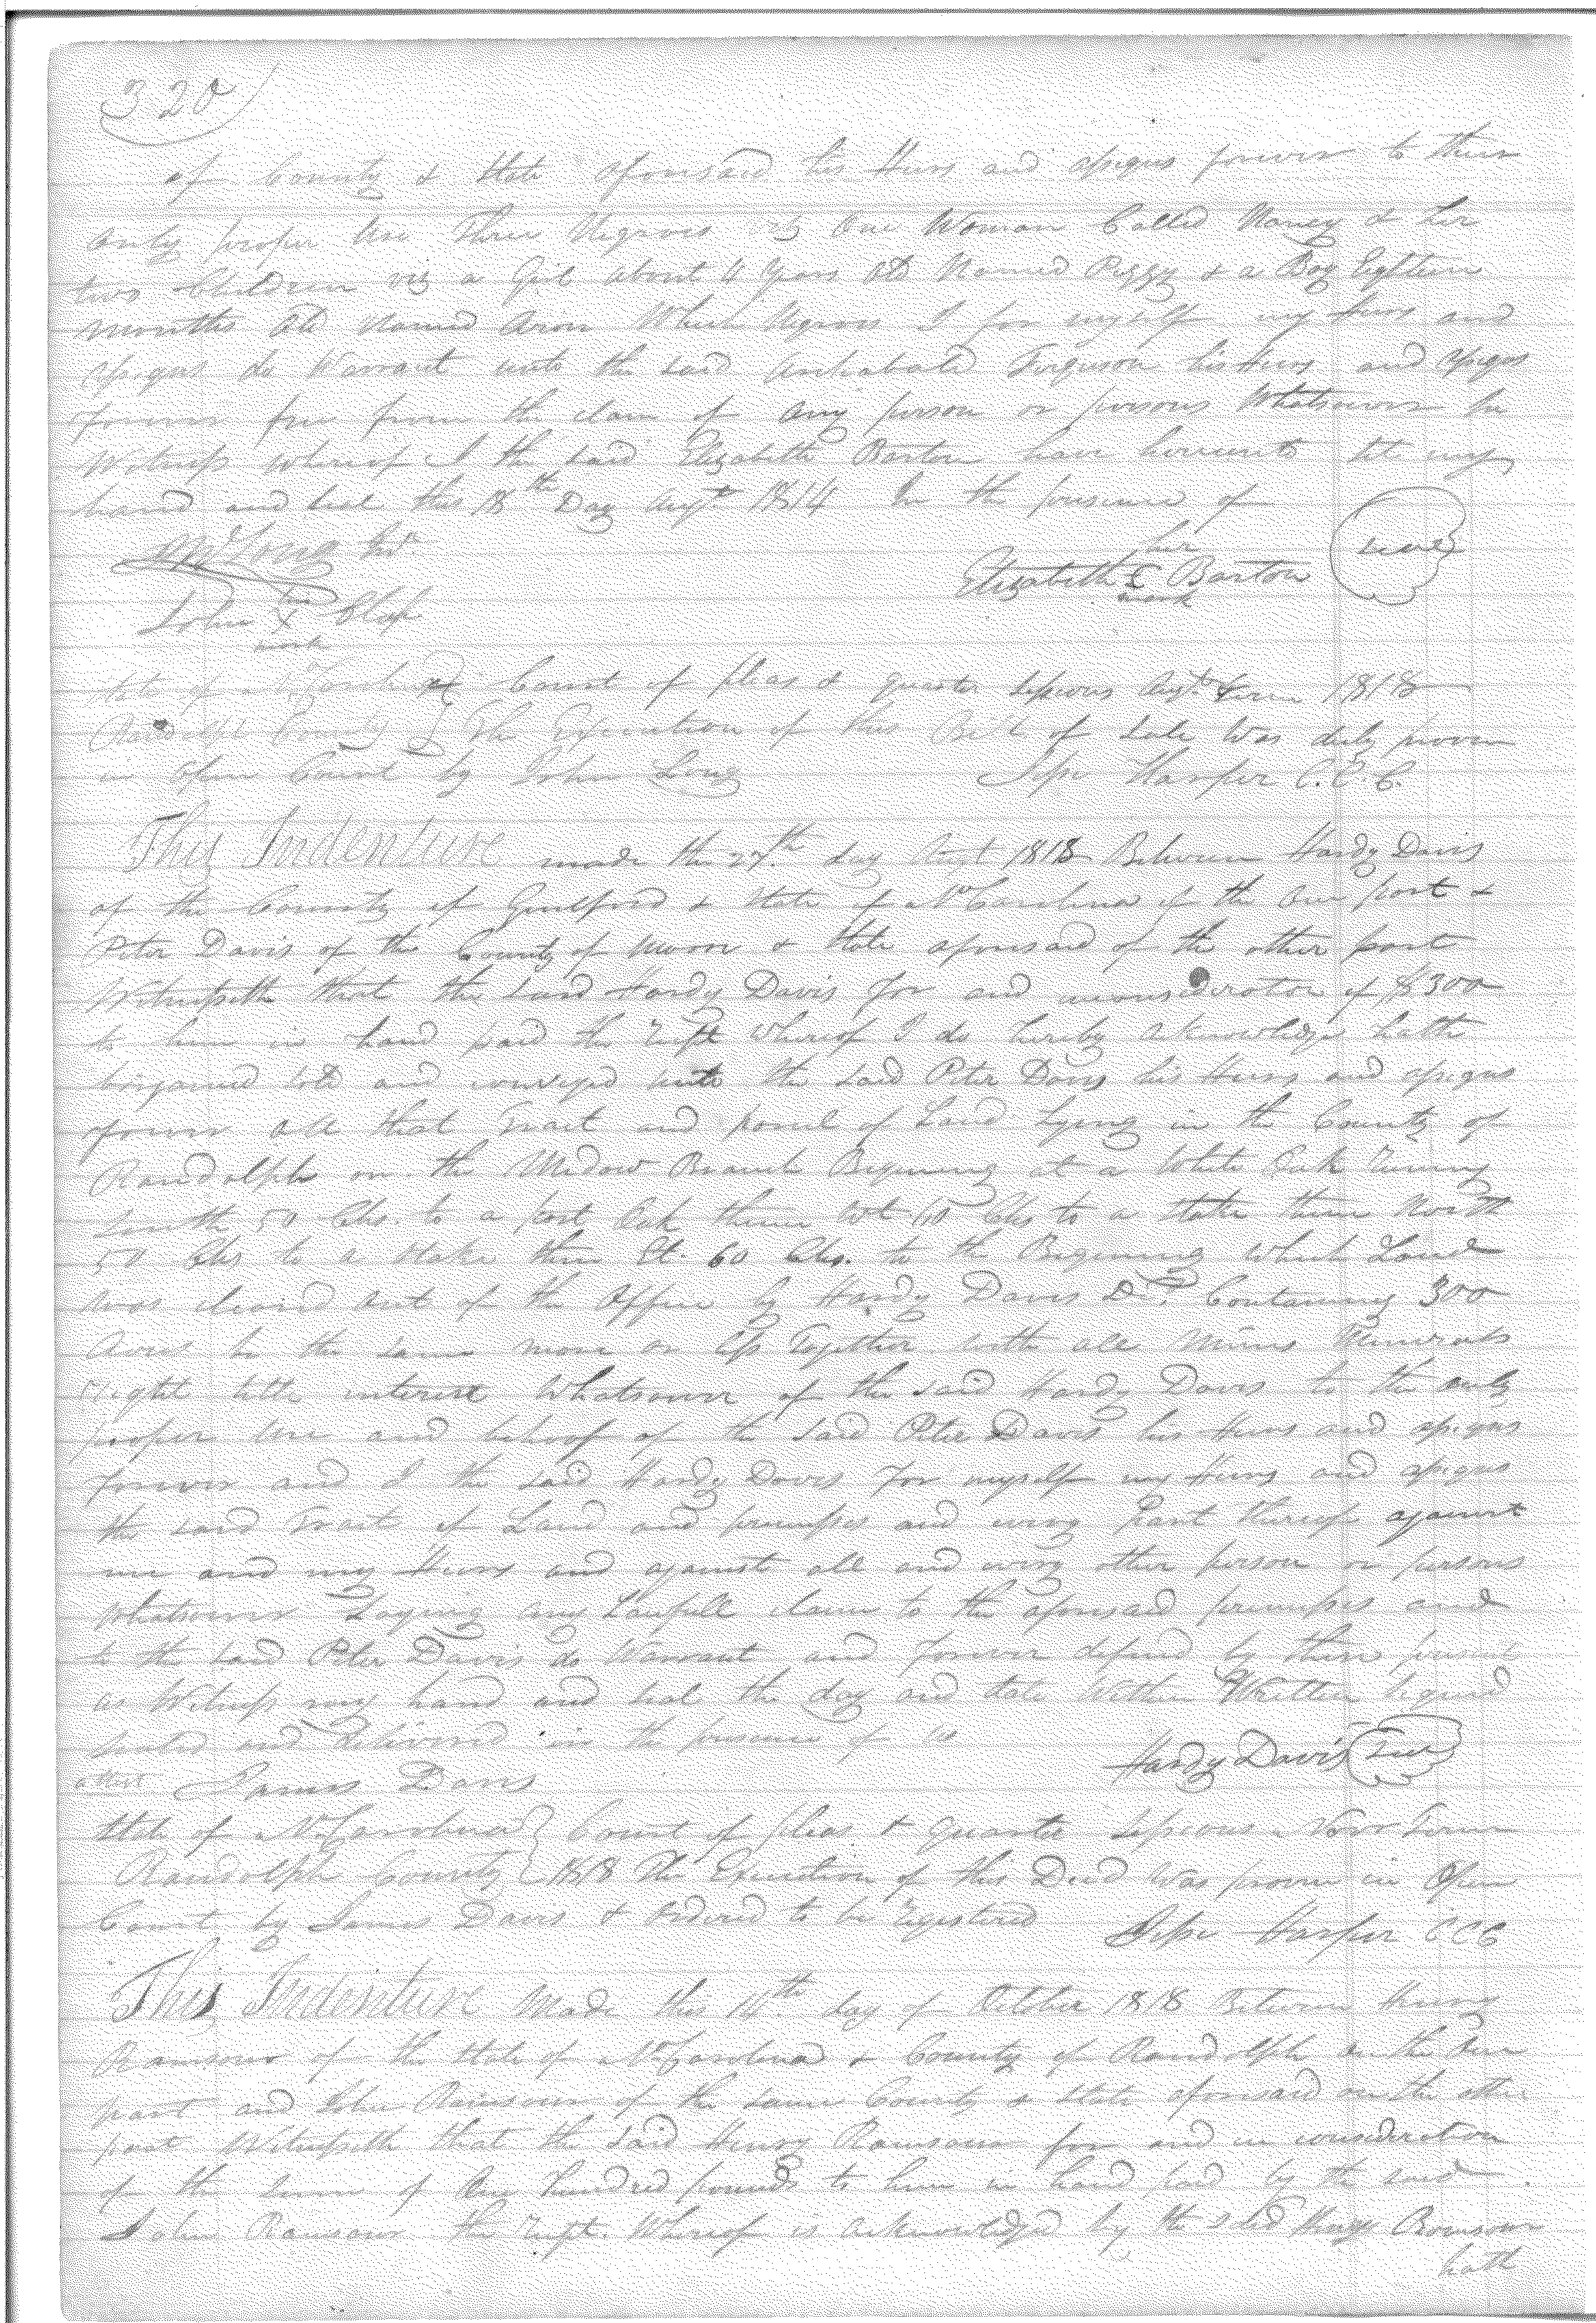 320
of County & State aforesaid his Heirs and assigns forever to their
only proper Use Three Negroes viz One Woman Called Nancy & her
two Children viz a Girl about 4 Years old Named Peggy & a Boy Eighteen
months old Named Aron Which Negroes I for myself my Heirs and
assigns do Warrant unto the said Archabald Ferguson his Heirs and assigns
forever free from the claim of any person or persons Whatsoever In
Witness whereof I the said Elizabeth Barton have hereunto set my
hand and seal this 18th Day Augt. 1814 In the presence of
Long
her
Elizabeth Barton Seal
mark
his
John X
mark
State of N Carolina Court of pleas & quarter Sessions Augt. Term 1818
Randolph County The Execution of this Bill of Sale Was duly proven
in Open Court by John Long Jesse Harper C.C.C.
This Indenture made the 27th day Augt 1818 Between Hardy Davis
of the County of Guilford & State of No Carolina of the One part &
Peter Davis of the County of Moore & State aforesaid of the other part
Witnesseth that the said Hardy Davis For and in consideration of $300
to him in hand paid the rect Whereof I do hereby acknowledge hath
bargained sold and conveyed unto the said Peter Davis his Heirs and assigns
forever all that Tract and parcel of Land Lying in the County of
Randolph on the Medow Branch Beginning at a White Oak runing
South 50 Chs. to a post Oak thence Wt 60 Chs to a stake thence North
50 Chs to a stake thence Et. 60 Chs. to the Beginning which Land
was cleard out of the Office by Hardy Davis Containing 300
Acres be the same more or less Together with all Mines Minerals
right title interest Whatsoever of the said Hardy Davis to the only
proper Use and behoof of the said Peter Davis his Heirs and assigns
forever and I the said Hardy Davis For myself my Heirs and assigns
the said Tract of Land and premises and every part thereof against
me and my Heirs and against all and every other person or persons
Whatsoever Laying any Lawfull claim to the aforesaid premises and
to the said Peter Davis do Warrant and Forever defend by these presents
as Witness my hand and seal the day and date Within Written Signed
sealed and delivered in the presence of us Hardy Davis Seal
attest James Davis
State of No Carolina Court of pleas & quarter Sessions Novr Term
Randolph County 1818 The Execution of this Deed Was proven in Open
Court by James Davis & Ordered to be Registered Jesse Harper CCC
This Indenture Made this 14th day of October 1818 Between Henry
Ramsour of the State of No Carolina & County of Randolph on the one
part and John Ramsour of the same County & State aforesaid on the other
part Witnesseth that the said Henry Ramsour for and in consideration
of the sum of One Hundred pounds to him in hand paid by the said
John Ramsour the rect. Whereof is acknowledged by the said Henry Ramsour
hath